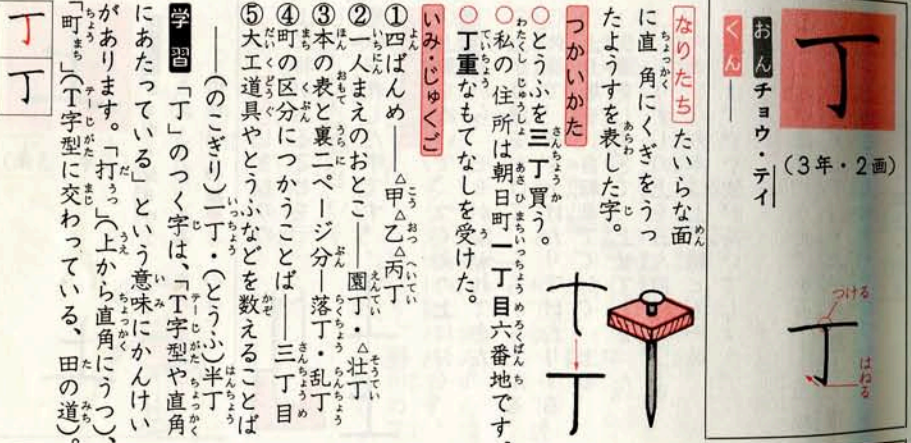 丁
(3年・2画)
おん チョウ・テイ
くん ――
丁
つける
はねる
なりたち たいらな面
に直角にくぎをうっ
たようすを表した字。
つかいかた
○とうふを三丁買う。
○私の住所は朝日町一丁目六番地です。
○丁重なもてなしを受けた。
いみ・じゅくご
①四ばんめ――△甲△乙△丙丁
②一人まえのおとこ――園丁・△壮丁
③本の表と裏二ページ分――落丁・乱丁
④町の区分につかうことば――三丁目
⑤大工道具やとうふなどを数えることば
――(のこぎり)一丁・(とうふ)半丁
学習 「丁」のつく字は、「T字型や直角
にあたっている」という意味にかんけい
があります。「打」(上から直角にうつ)、
「町」(T字型に交わっている、田の道)。
丁
丁